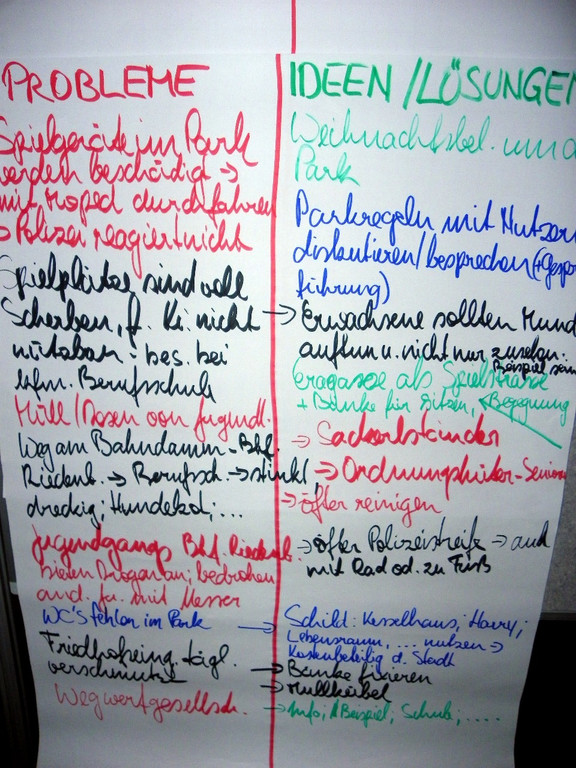 PROBLEME
Spielgeräte im Park
werden beschädigt →
mit Moped durchfahren
→ Polizei reagiert nicht
Spielplätze sind voll
Scherben, f. Ki. nicht
nützbar - bes. bei
kfm. Berufsschule
Müll/Dosen von Jugendl.
Weg am Bahndamm - Bhf.
Riedenb. → Berufsch. → stinkt,
dreckig; Hundekot; ...
Jugendgangs Bhf. Riedenb.
bieten Drogen an; bedrohen
and. Ju. mit Messer
WC's fehlen im Park
Friedhofeing. tägl.
verschmutzt
Wegwerfgesellsch.
IDEEN/LÖSUNGEN
Weihnachtsbel. um d
Park
Parkregeln mit Nutzern
diskutieren/besprechen (+Gesprä
führung)
→ Erwachsene sollten Mund
auftun u. nicht nur zusehen.
Beispiel sein
als Spielstrasse
+ Bänke für Sitzen, Begegnung
→ Sackerlständer
→ Ordnungshüter - Senioren
→ öfter reinigen
→ öfter Polizeistreife → auch
mit Rad od. zu Fuß
→ Schild: Kesselhaus; Harry;
Lebensraum, ... nutzen →
Kostenbeteilig d. Stadt
→ Bänke fixieren
→ Müllkübel
→ Info; Beispiel; Schule; ....